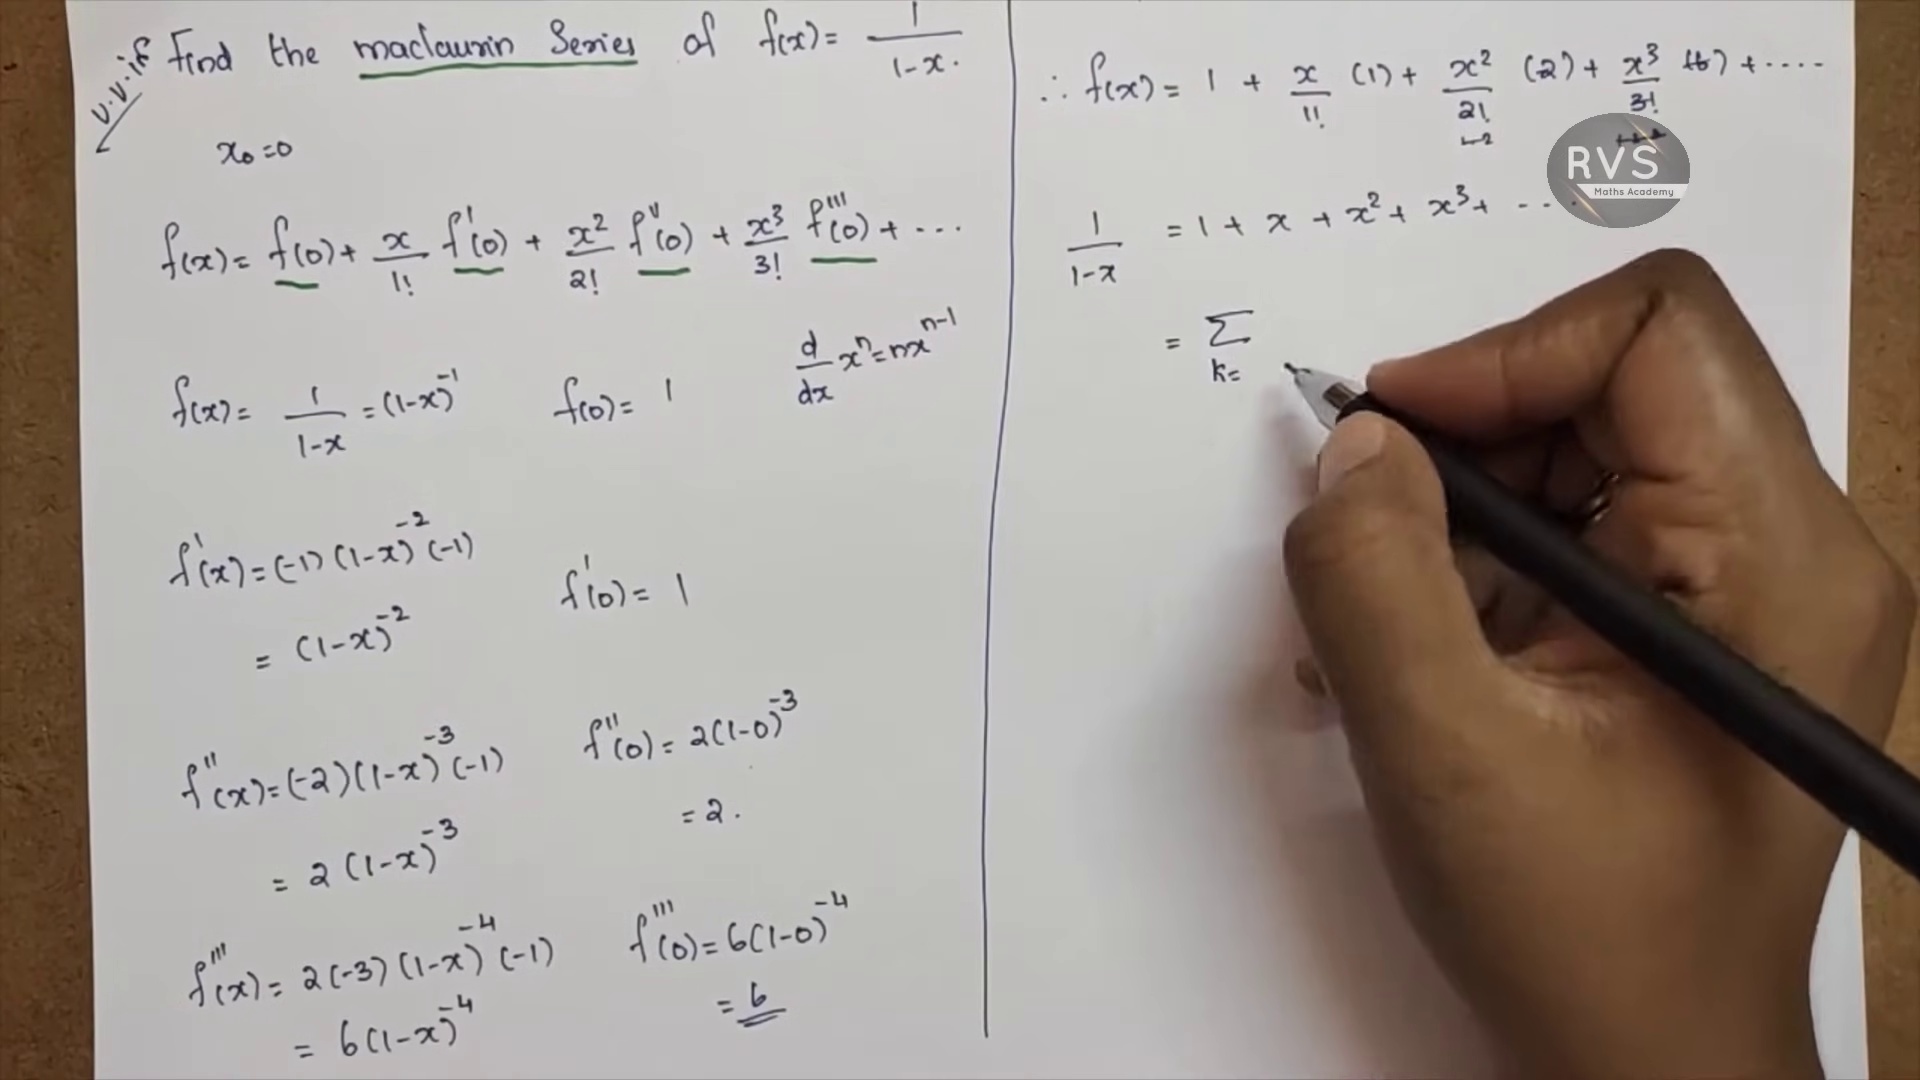 V.V.if Find the maclaurin Series of f(x) = 1/1-x.
x₀=0
f(x) = f(0) + x/1! f'(0) + x²/2! f''(0) + x³/3! f'''(0) + ...
d/dx xⁿ = nxⁿ⁻¹
f(x) = 1/1-x = (1-x)⁻¹ f(0) = 1
f'(x) = (-1) (1-x)⁻² (-1)
= (1-x)⁻² f'(0) = 1
f''(x) = (-2) (1-x)⁻³ (-1) f''(0) = 2(1-0)⁻³
= 2 (1-x)⁻³ = 2.
f'''(x) = 2(-3) (1-x)⁻⁴ (-1) f'''(0) = 6(1-0)⁻⁴
= 6(1-x)⁻⁴ = 6
∴ f(x) = 1 + x/1! (1) + x²/2! (2) + x³/3! (6) + ....
1·2
RVS
Maths Academy
1/1-x = 1 + x + x² + x³ + ...
= Σ
k=